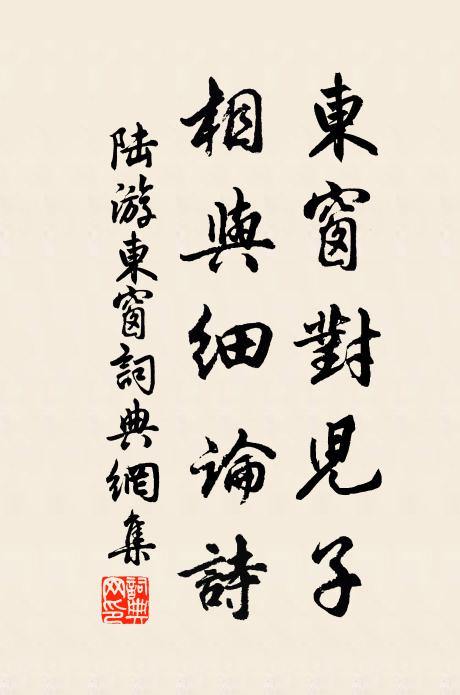 東窗對兒子
相與細論詩
陆游東窗詞典網集
詞典网印